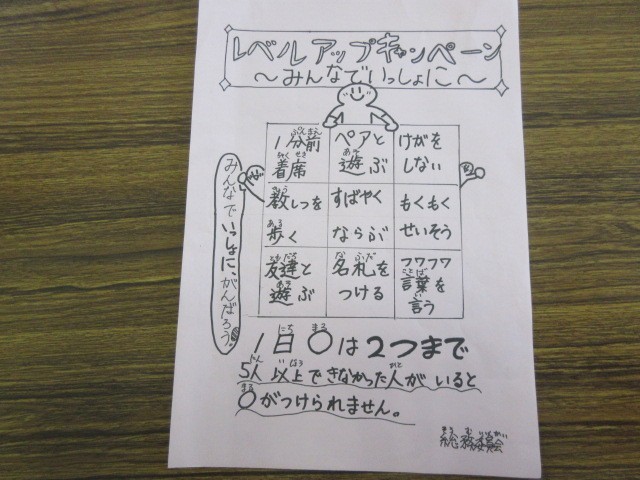 レベルアップキャンペーン
～みんなでいっしょに～
1分前
着席
ペアと
遊ぶ
けがを
しない
教しつを
歩く
すばやく
ならぶ
もくもく
せいそう
友達と
遊ぶ
名札を
つける
フワフワ
言葉を
言う
みんなでいっしょに、がんばろう。
1日〇は2つまで
5人以上できなかった人がいると
〇がつけられません。
総務委員会